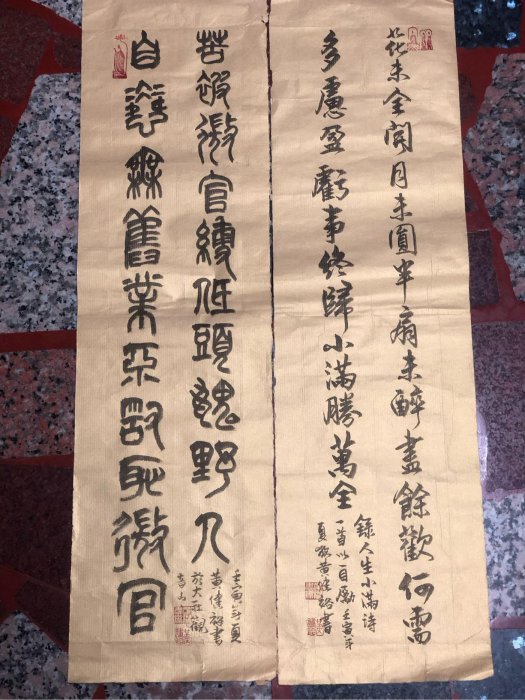 花未全開月未圓半扇未醉盡餘歡何需
多慮盈虧事終歸小滿勝萬全
錄人生小滿詩
一首以自勵壬寅年
夏於黃健裕書
苦被微官縛低頭愧野人
自憐無舊業不敢恥微官
壬寅年夏
黃健裕書
於大莊觀